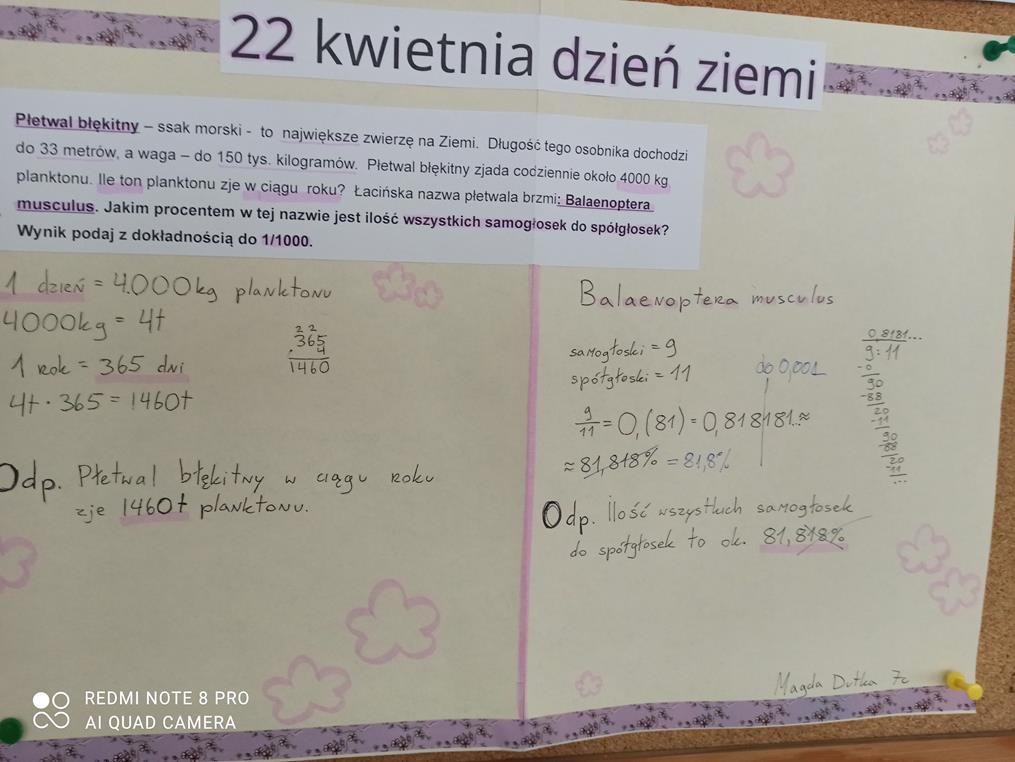 22 kwietnia dzień ziemi
Płetwal błękitny – ssak morski - to największe zwierzę na Ziemi. Długość tego osobnika dochodzi
do 33 metrów, a waga – do 150 tys. kilogramów. Płetwal błękitny zjada codziennie około 4000 kg
planktonu. Ile ton planktonu zje w ciągu roku? Łacińska nazwa płetwala brzmi: Balaenoptera
musculus. Jakim procentem w tej nazwie jest ilość wszystkich samogłosek do spółgłosek?
Wynik podaj z dokładnością do 1/1000.
1 dzień = 4.000kg planktonu
4000kg = 4t
1 rok = 365 dni
4t · 365 = 1460t
2 2
365
· 4
1460
Odp. Płetwal błękitny w ciągu roku
zje 1460t planktonu.
Balaenoptera musculus
samogłoski = 9
spółgłoski = 11
do 0,001
9/11 = 0,(81) = 0,818181..≈
≈ 81,818% = 81,8%
0,8181...
9:11
-0
90
-88
20
-11
90
-88
20
-11
...
Odp. Ilość wszystkich samogłosek
do spółgłosek to ok. 81,818%
Magda Dutka 7c
REDMI NOTE 8 PRO
AI QUAD CAMERA